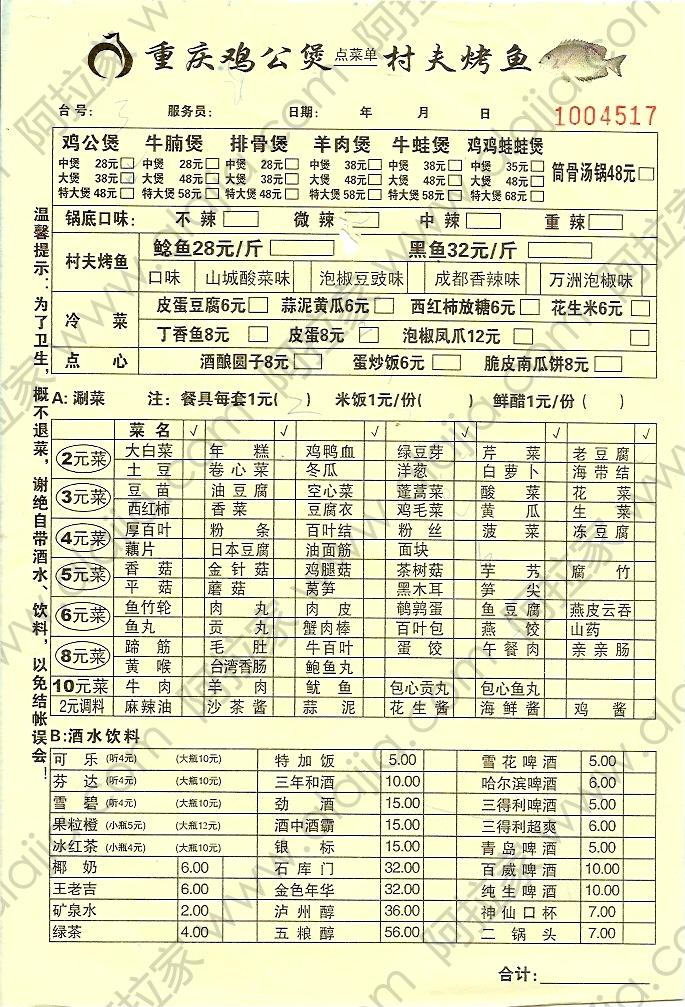 重庆鸡公煲 点菜单 村夫烤鱼
台号: 服务员: 日期: 年 月 日 1004517
鸡公煲 牛腩煲 排骨煲 羊肉煲 牛蛙煲 鸡鸡蛙蛙煲
中煲 28元 中煲 28元 中煲 28元 中煲 38元 中煲 38元 中煲 35元 筒骨汤锅48元
大煲 38元 大煲 38元 大煲 38元 大煲 48元 大煲 48元 大煲 48元
特大煲 48元 特大煲 58元 特大煲 48元 特大煲 58元 特大煲 58元 特大煲 68元
锅底口味: 不辣 微辣 中辣 重辣
村夫烤鱼 鲶鱼28元/斤 黑鱼32元/斤
口味 山城酸菜味 泡椒豆豉味 成都香辣味 万洲泡椒味
冷菜 皮蛋豆腐6元 蒜泥黄瓜6元 西红柿放糖6元 花生米6元
丁香鱼8元 皮蛋8元 泡椒凤爪12元
点心 酒酿圆子8元 蛋炒饭6元 脆皮南瓜饼8元
温馨提示:为了卫生,概不退菜,谢绝自带酒水、饮料,以免结帐误会!
A:涮菜 注: 餐具每套1元( ) 米饭1元/份( ) 鲜醋1元/份( )
菜名 √ √ √ √ √ √
2元菜 大白菜 年糕 鸡鸭血 绿豆芽 芹菜 老豆腐
土豆 卷心菜 冬瓜 洋葱 白萝卜 海带结
3元菜 豆苗 油豆腐 空心菜 蓬蒿菜 酸菜 花菜
西红柿 香菜 豆腐衣 鸡毛菜 黄瓜 生菜
4元菜 厚百叶 粉条 百叶结 粉丝 菠菜 冻豆腐
藕片 日本豆腐 油面筋 面块
5元菜 香菇 金针菇 鸡腿菇 茶树菇 芋艿 腐竹
平菇 蘑菇 莴笋 黑木耳 笋尖
6元菜 鱼竹轮 肉丸 肉皮 鹌鹑蛋 鱼豆腐 燕皮云吞
鱼丸 贡丸 蟹肉棒 百叶包 燕饺 山药
8元菜 蹄筋 毛肚 牛百叶 蛋饺 午餐肉 亲亲肠
黄喉 台湾香肠 鲍鱼丸
10元菜 牛肉 羊肉 鱿鱼 包心贡丸 包心鱼丸
2元调料 麻辣油 沙茶酱 蒜泥 花生酱 海鲜酱 鸡酱
B:酒水饮料
可乐 (听4元) (大瓶10元) 特加饭 5.00 雪花啤酒 5.00
芬达 (听4元) (大瓶10元) 三年和酒 10.00 哈尔滨啤酒 6.00
雪碧 (听4元) (大瓶10元) 劲酒 15.00 三得利啤酒 5.00
果粒橙 (小瓶5元) (大瓶12元) 酒中酒霸 15.00 三得利超爽 6.00
冰红茶 (小瓶4元) (大瓶10元) 银标 15.00 青岛啤酒 5.00
椰奶 6.00 石库门 32.00 百威啤酒 10.00
王老吉 6.00 金色年华 32.00 纯生啤酒 10.00
矿泉水 2.00 泸州醇 36.00 神仙口杯 7.00
绿茶 4.00 五粮醇 56.00 二锅头 7.00
合计:
阿拉家 www.alajia.com